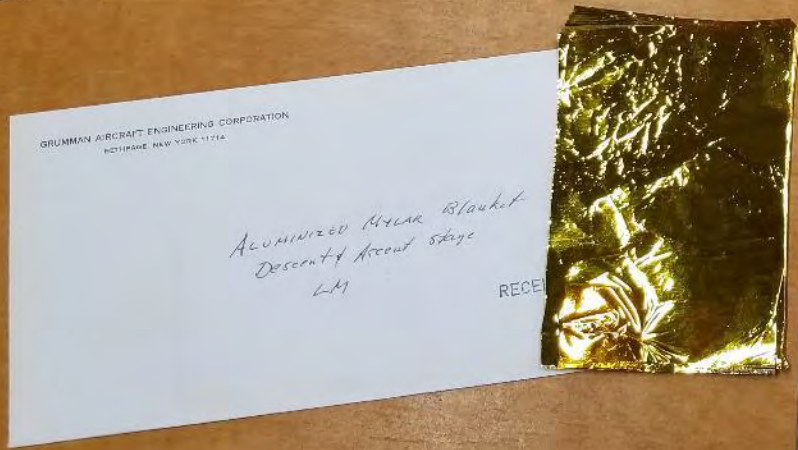 GRUMMAN AIRCRAFT ENGINEERING CORPORATION
BETHPAGE, NEW YORK 11714
ALUMINIZED MYLAR Blanket
Descent & Ascent stage
LM
RECEI